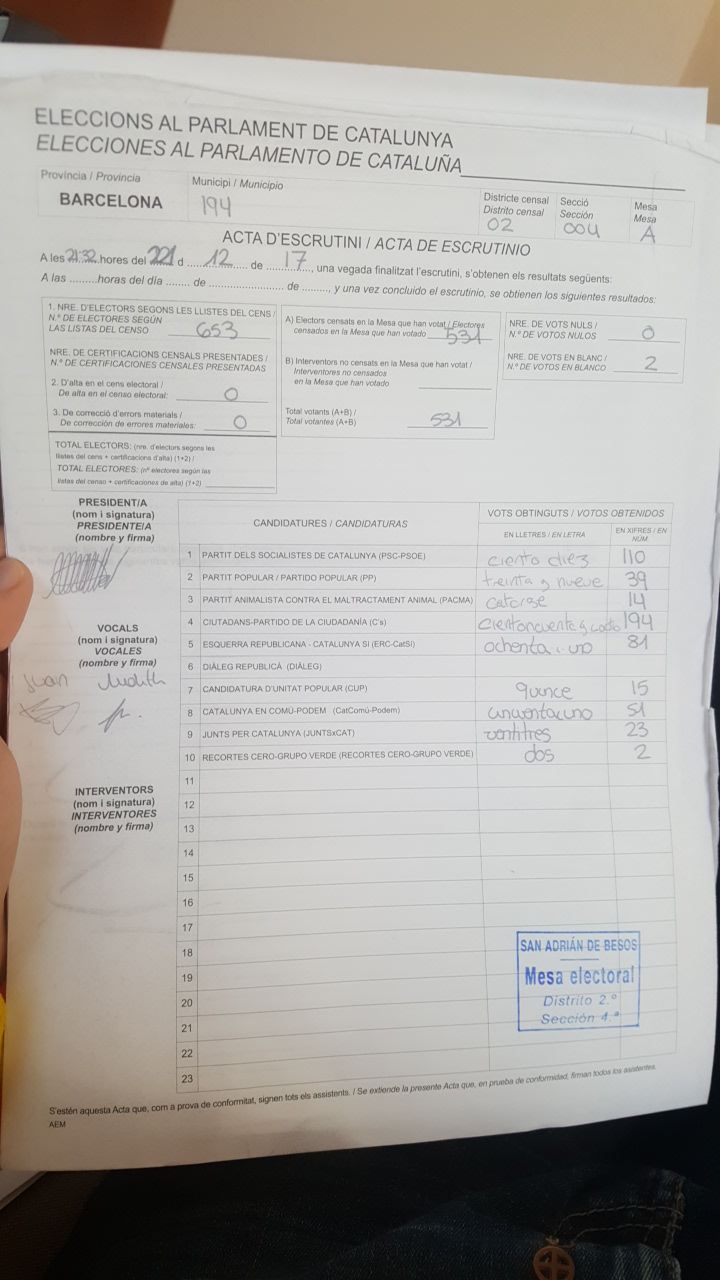 ELECCIONS AL PARLAMENT DE CATALUNYA
ELECCIONES AL PARLAMENTO DE CATALUÑA
Provincia / Provincia
BARCELONA
Municipi / Municipio
194
Districte censal
Distrito censal
02
Secció
Sección
004
Mesa
Mesa
A
ACTA D'ESCRUTINI / ACTA DE ESCRUTINIO
A les 21:32 hores del 221 d ...12... de ...17..., una vegada finalitzat l'escrutini, s'obtenen els resultats següents:
A las .........horas del día ........ de ........................... de ........., y una vez concluido el escrutinio, se obtienen los siguientes resultados:
1. NRE. D'ELECTORS SEGONS LES LLISTES DEL CENS /
N.º DE ELECTORES SEGÚN
LAS LISTAS DEL CENSO 653
NRE. DE CERTIFICACIONS CENSALS PRESENTADES /
N.º DE CERTIFICACIONES CENSALES PRESENTADAS
2. D'alta en el cens electoral /
De alta en el censo electoral: 0
3. De correcció d'errors materials /
De corrección de errores materiales: 0
TOTAL ELECTORS: (nre. d'electors segons les
llistes del cens + certificacions d'alta) (1+2) /
TOTAL ELECTORES: (nº electores según las
listas del censo + certificaciones de alta) (1+2)
A) Electors censats en la Mesa que han votat / Electores
censados en la Mesa que han votado 531
B) Interventors no censats en la Mesa que han votat /
Interventores no censados
en la Mesa que han votado
Total votants (A+B) /
Total votantes (A+B) 531
NRE. DE VOTS NULS /
N.º DE VOTOS NULOS 0
NRE. DE VOTS EN BLANC /
N.º DE VOTOS EN BLANCO 2
PRESIDENT/A
(nom i signatura)
PRESIDENTE/A
(nombre y firma)
VOCALS
(nom i signatura)
VOCALES
(nombre y firma)
Juan Judith
INTERVENTORS
(nom i signatura)
INTERVENTORES
(nombre y firma)
CANDIDATURES / CANDIDATURAS
VOTS OBTINGUTS / VOTOS OBTENIDOS
EN LLETRES / EN LETRA
EN XIFRES / EN NÚM.
1 PARTIT DELS SOCIALISTES DE CATALUNYA (PSC-PSOE) ciento diez 110
2 PARTIT POPULAR / PARTIDO POPULAR (PP) treinta y nueve 39
3 PARTIT ANIMALISTA CONTRA EL MALTRACTAMENT ANIMAL (PACMA) catorse 14
4 CIUTADANS-PARTIDO DE LA CIUDADANÍA (C's) 194
5 ESQUERRA REPUBLICANA - CATALUNYA SÍ (ERC-CatSí) ochenta i uno 81
6 DIÀLEG REPUBLICÀ (DIÀLEG)
7 CANDIDATURA D'UNITAT POPULAR (CUP) quince 15
8 CATALUNYA EN COMÚ-PODEM (CatComú-Podem) cincuentacuno 51
9 JUNTS PER CATALUNYA (JUNTSxCAT) ventitres 23
10 RECORTES CERO-GRUPO VERDE (RECORTES CERO-GRUPO VERDE) dos 2
11
12
13
14
15
16
17
18
19
20
21
22
23
SAN ADRIÁN DE BESOS
Mesa electoral
Distrito 2.º
Sección 4.ª
S'estén aquesta Acta que, com a prova de conformitat, signen tots els assistents. / Se extiende la presente Acta que, en prueba de conformidad, firman todos los asistentes.
AEM